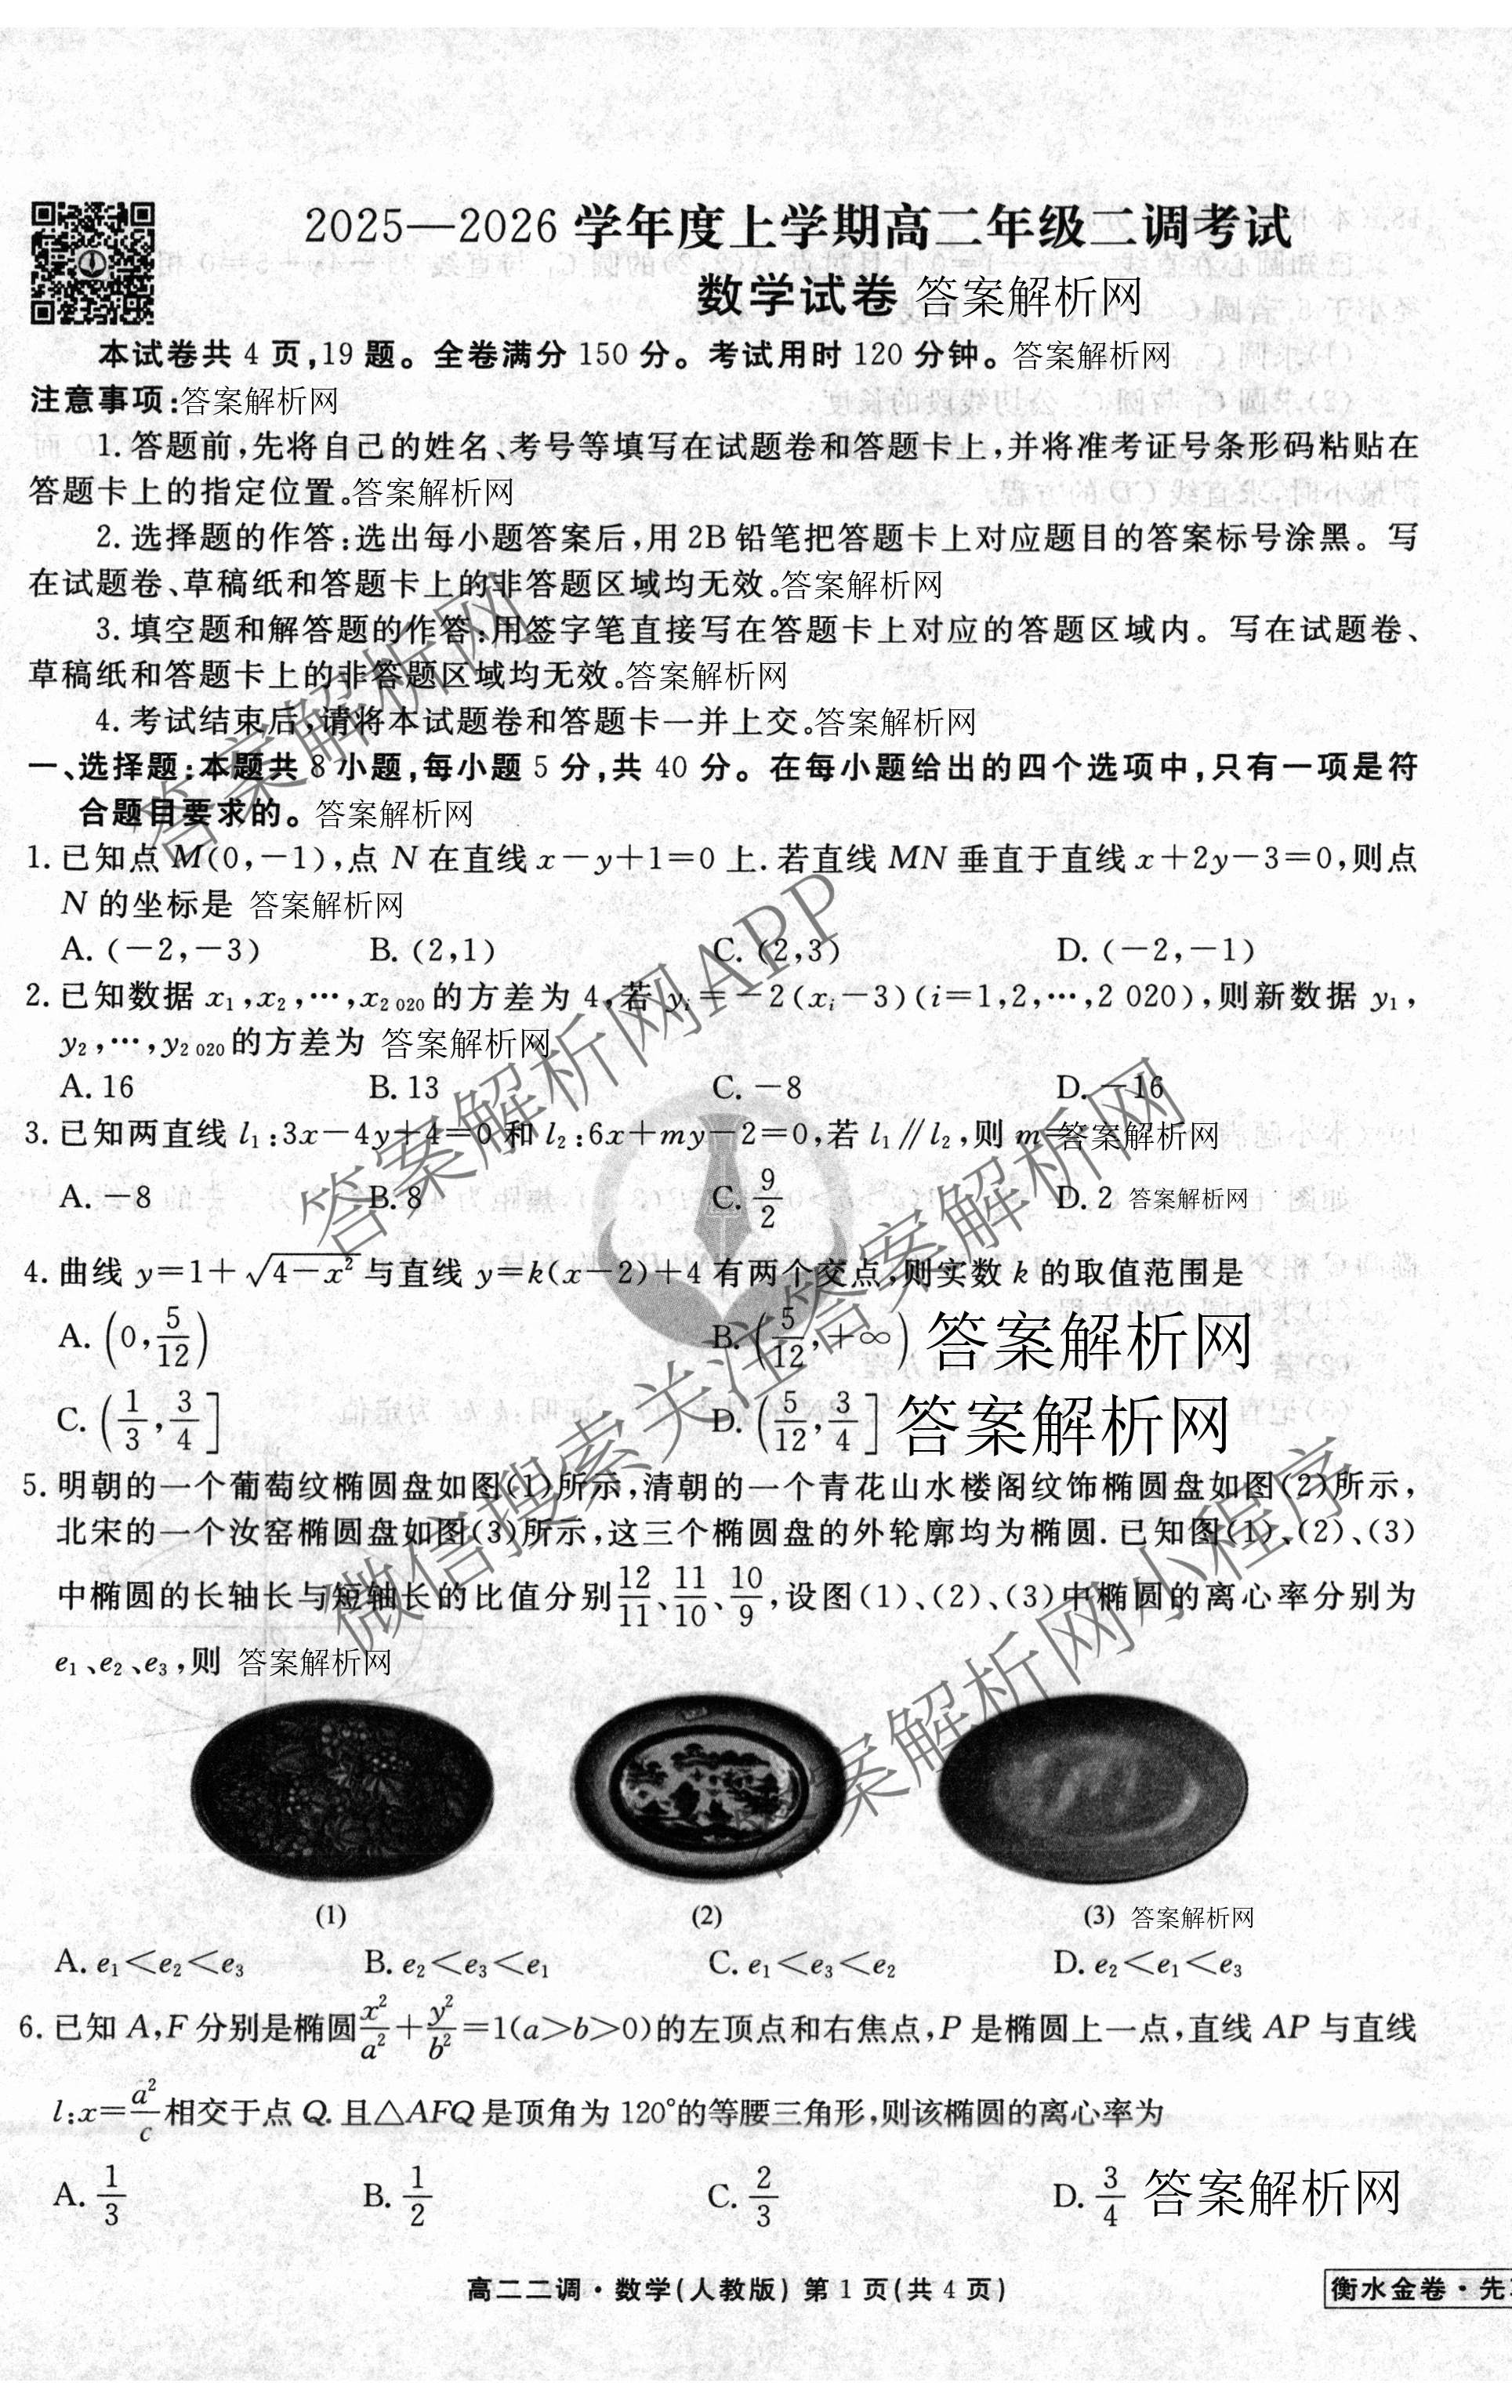 2025—2026学年度上学期高二年级二调考试
数学试卷 答案解析网
本试卷共4页,19题。全卷满分150分。考试用时120分钟。答案解析网
注意事项:答案解析网
1.答题前,先将自己的姓名、考号等填写在试题卷和答题卡上,并将准考证号条形码粘贴在
答题卡上的指定位置。答案解析网
2.选择题的作答:选出每小题答案后,用2B铅笔把答题卡上对应题目的答案标号涂黑。写
在试题卷、草稿纸和答题卡上的非答题区域均无效。答案解析网
3.填空题和解答题的作答:用签字笔直接写在答题卡上对应的答题区域内。写在试题卷、
草稿纸和答题卡上的非答题区域均无效。答案解析网
4.考试结束后,请将本试题卷和答题卡一并上交。答案解析网
一、选择题:本题共8小题,每小题5分,共40分。在每小题给出的四个选项中,只有一项是符
合题目要求的。答案解析网
1.已知点M(0,-1),点N在直线x-y+1=0上.若直线MN垂直于直线x+2y-3=0,则点
N的坐标是 答案解析网
A.(-2,-3) B.(2,1) C.(2,3) D.(-2,-1)
2.已知数据x₁,x₂,…,x₂₀₂₀的方差为4,若yᵢ=-2(xᵢ-3)(i=1,2,…,2 020),则新数据y₁,
y₂,…,y₂₀₂₀的方差为 答案解析网
A.16 B.13 C.-8 D.-16
3.已知两直线l₁:3x-4y+4=0和l₂:6x+my-2=0,若l₁∥l₂,则m=答案解析网
A.-8 B.8 C.9/2 D.2 答案解析网
4.曲线y=1+√(4-x²)与直线y=k(x-2)+4有两个交点,则实数k的取值范围是
A.(0,5/12) B.(5/12,+∞) 答案解析网
C.(1/3,3/4] D.(5/12,3/4] 答案解析网
5.明朝的一个葡萄纹椭圆盘如图(1)所示,清朝的一个青花山水楼阁纹饰椭圆盘如图(2)所示,
北宋的一个汝窑椭圆盘如图(3)所示,这三个椭圆盘的外轮廓均为椭圆.已知图(1)、(2)、(3)
中椭圆的长轴长与短轴长的比值分别12/11、11/10、10/9,设图(1)、(2)、(3)中椭圆的离心率分别为
e₁、e₂、e₃,则 答案解析网
(1) (2) (3) 答案解析网
A.e₁<e₂<e₃ B.e₂<e₃<e₁ C.e₁<e₃<e₂ D.e₂<e₁<e₃
6.已知A,F分别是椭圆x²/a²+y²/b²=1(a>b>0)的左顶点和右焦点,P是椭圆上一点,直线AP与直线
l:x=a²/c相交于点Q.且△AFQ是顶角为120°的等腰三角形,则该椭圆的离心率为
A.1/3 B.1/2 C.2/3 D.3/4 答案解析网
高二二调·数学(人教版) 第1页(共4页)
衡水金卷·先
答案解析网
答案解析网APP
微信搜索关注答案解析网
答案解析网小程序